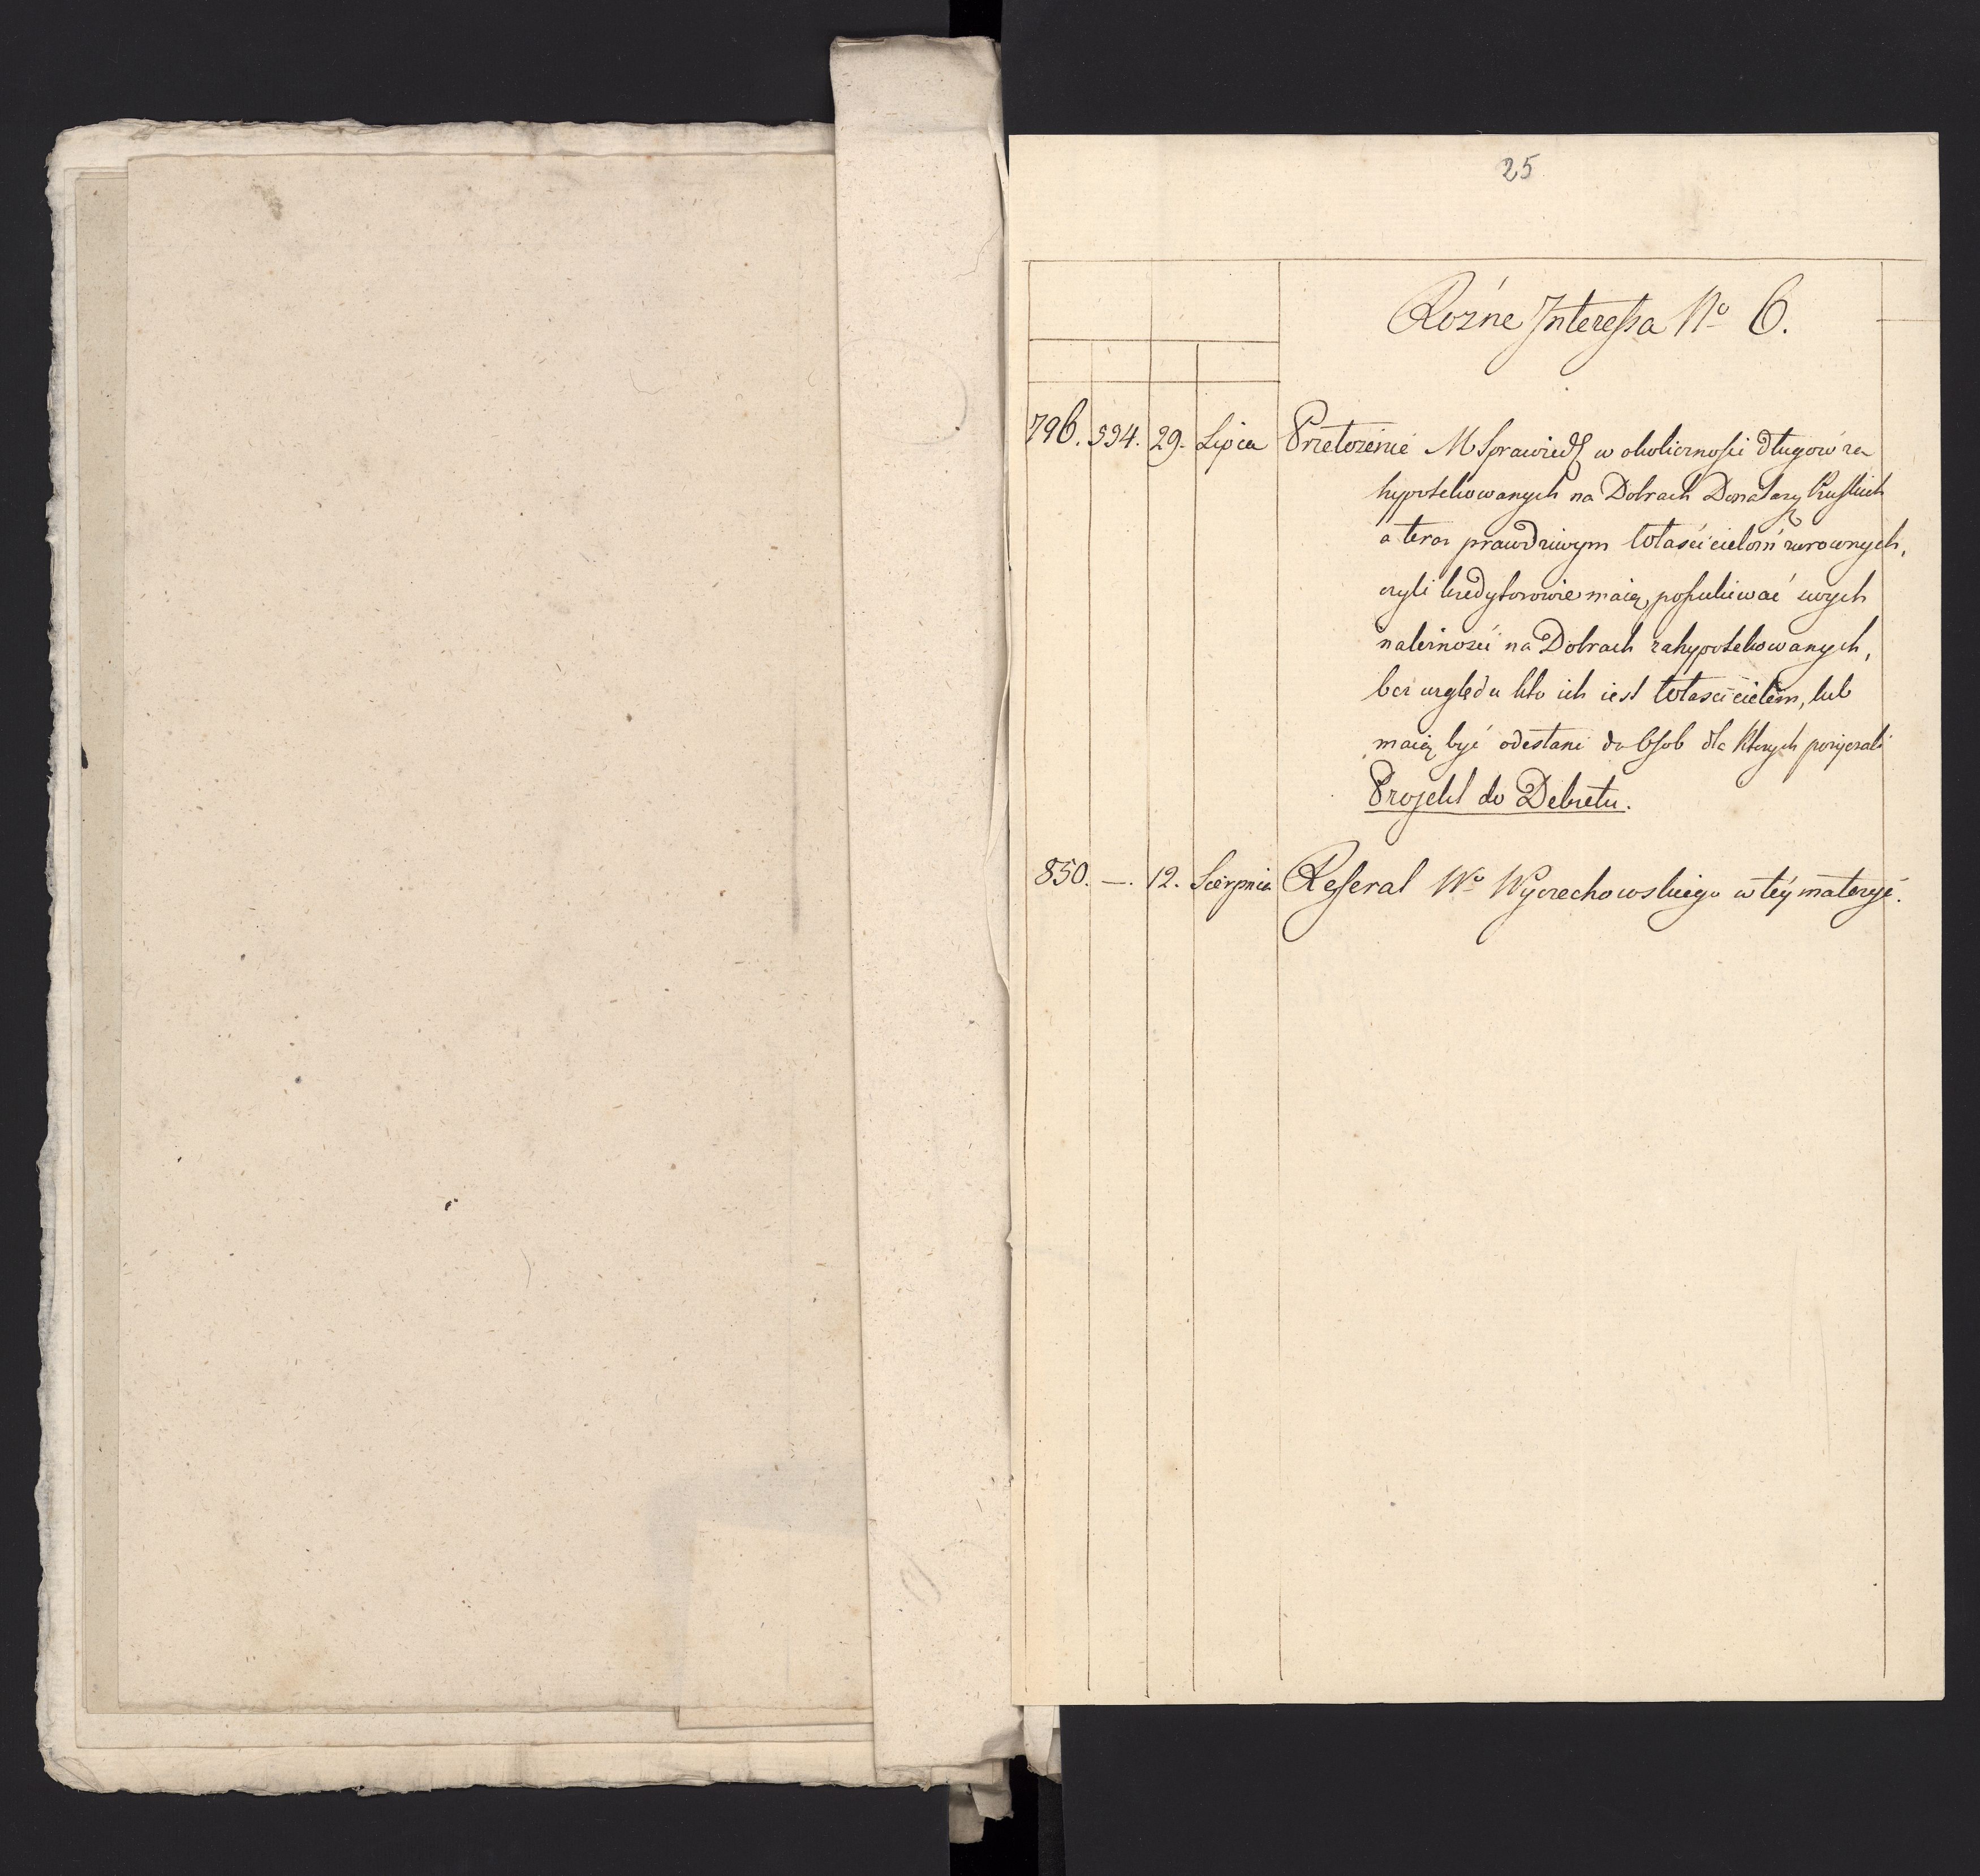 25
Rożne Interessa No 6.
796. 594. 29. Lipca Przełożenie M Sprawiedl w okoliczności długow za
hypotekowanych na Dobrach Donatary Ruskich
a teraz prawdziwym Włascicielom zwroconych,
czyli kredytorowie maią poszukiwać swych
należności na Dobrach zahypotekowanych,
bez względu kto ich iest Włascicielem, lub
maią być odesłani do Osob dla ktorych pożyczali
Projekt do Dekretu.
850. —. 12. Sierpnia Referat Wo Wyczechowskiego w téy materyi.